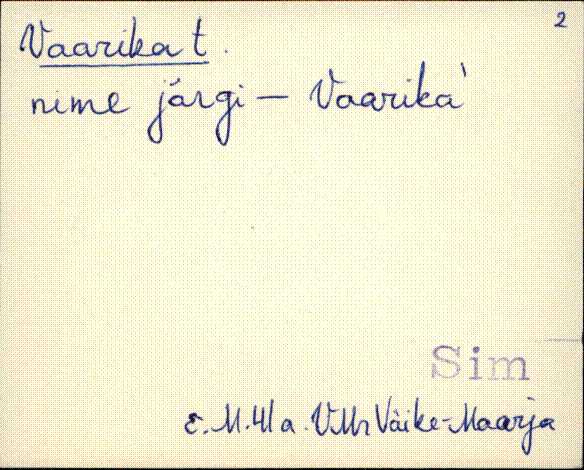 2
Vaarika t.
nime järgi – Vaarika'
Sim
E. M. 41 a. VMr Väike-Maarja